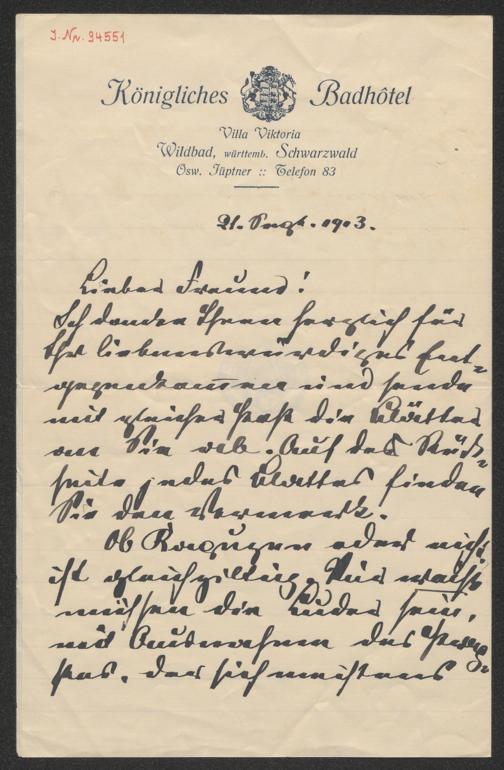 J. Nr. 94551
Königliches Badhôtel
Villa Viktoria
Wildbad, württemb. Schwarzwald
Osw. Jüptner :: Telefon 83
21. Sept. 1913.
Lieber Freund!
Ich danke Ihnen herzlich für
Ihr liebenswürdiges Ent-
gegenkommen und sende
mit gleicher Post die Blätter
an Sie ab. Auf der Rück-
seite jedes Blattes finden
Sie den Vermerk.
Ob oder nicht,
ist gleichgiltig. Nur
müssen die Luder sein,
mit Ausnahme des
der sich meistens